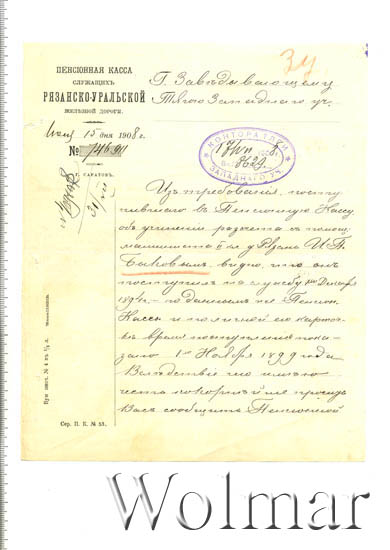 34
ПЕНСІОННАЯ КАССА
СЛУЖАЩИХЪ
РЯЗАНСКО-УРАЛЬСКОЙ
ЖЕЛѢЗНОЙ ДОРОГИ.
15 дня 1908 г.
№
Г. САРАТОВЪ.
Г. Завѣдывающему
Тягою Западнаго уч.
КОНТОРА
ЗАПАДНАГО УЧ.
Изъ требованія, посту
пившаго въ Пенсіонную Кассу
объ учиненіи разсчета съ помощ.
машиниста
Быковымъ, видно, что онъ
поступилъ на службу Декабря
по даннымъ же Пенсіон.
Кассы и личной его карточ
въ время поступленія пока-
зано 1го Ноября 1899 года
Вслѣдствіе чего имѣю
честь покорнѣйше просить
Васъ сообщить Пенсіонной
Сер. П. К. № 53.
Wolmar